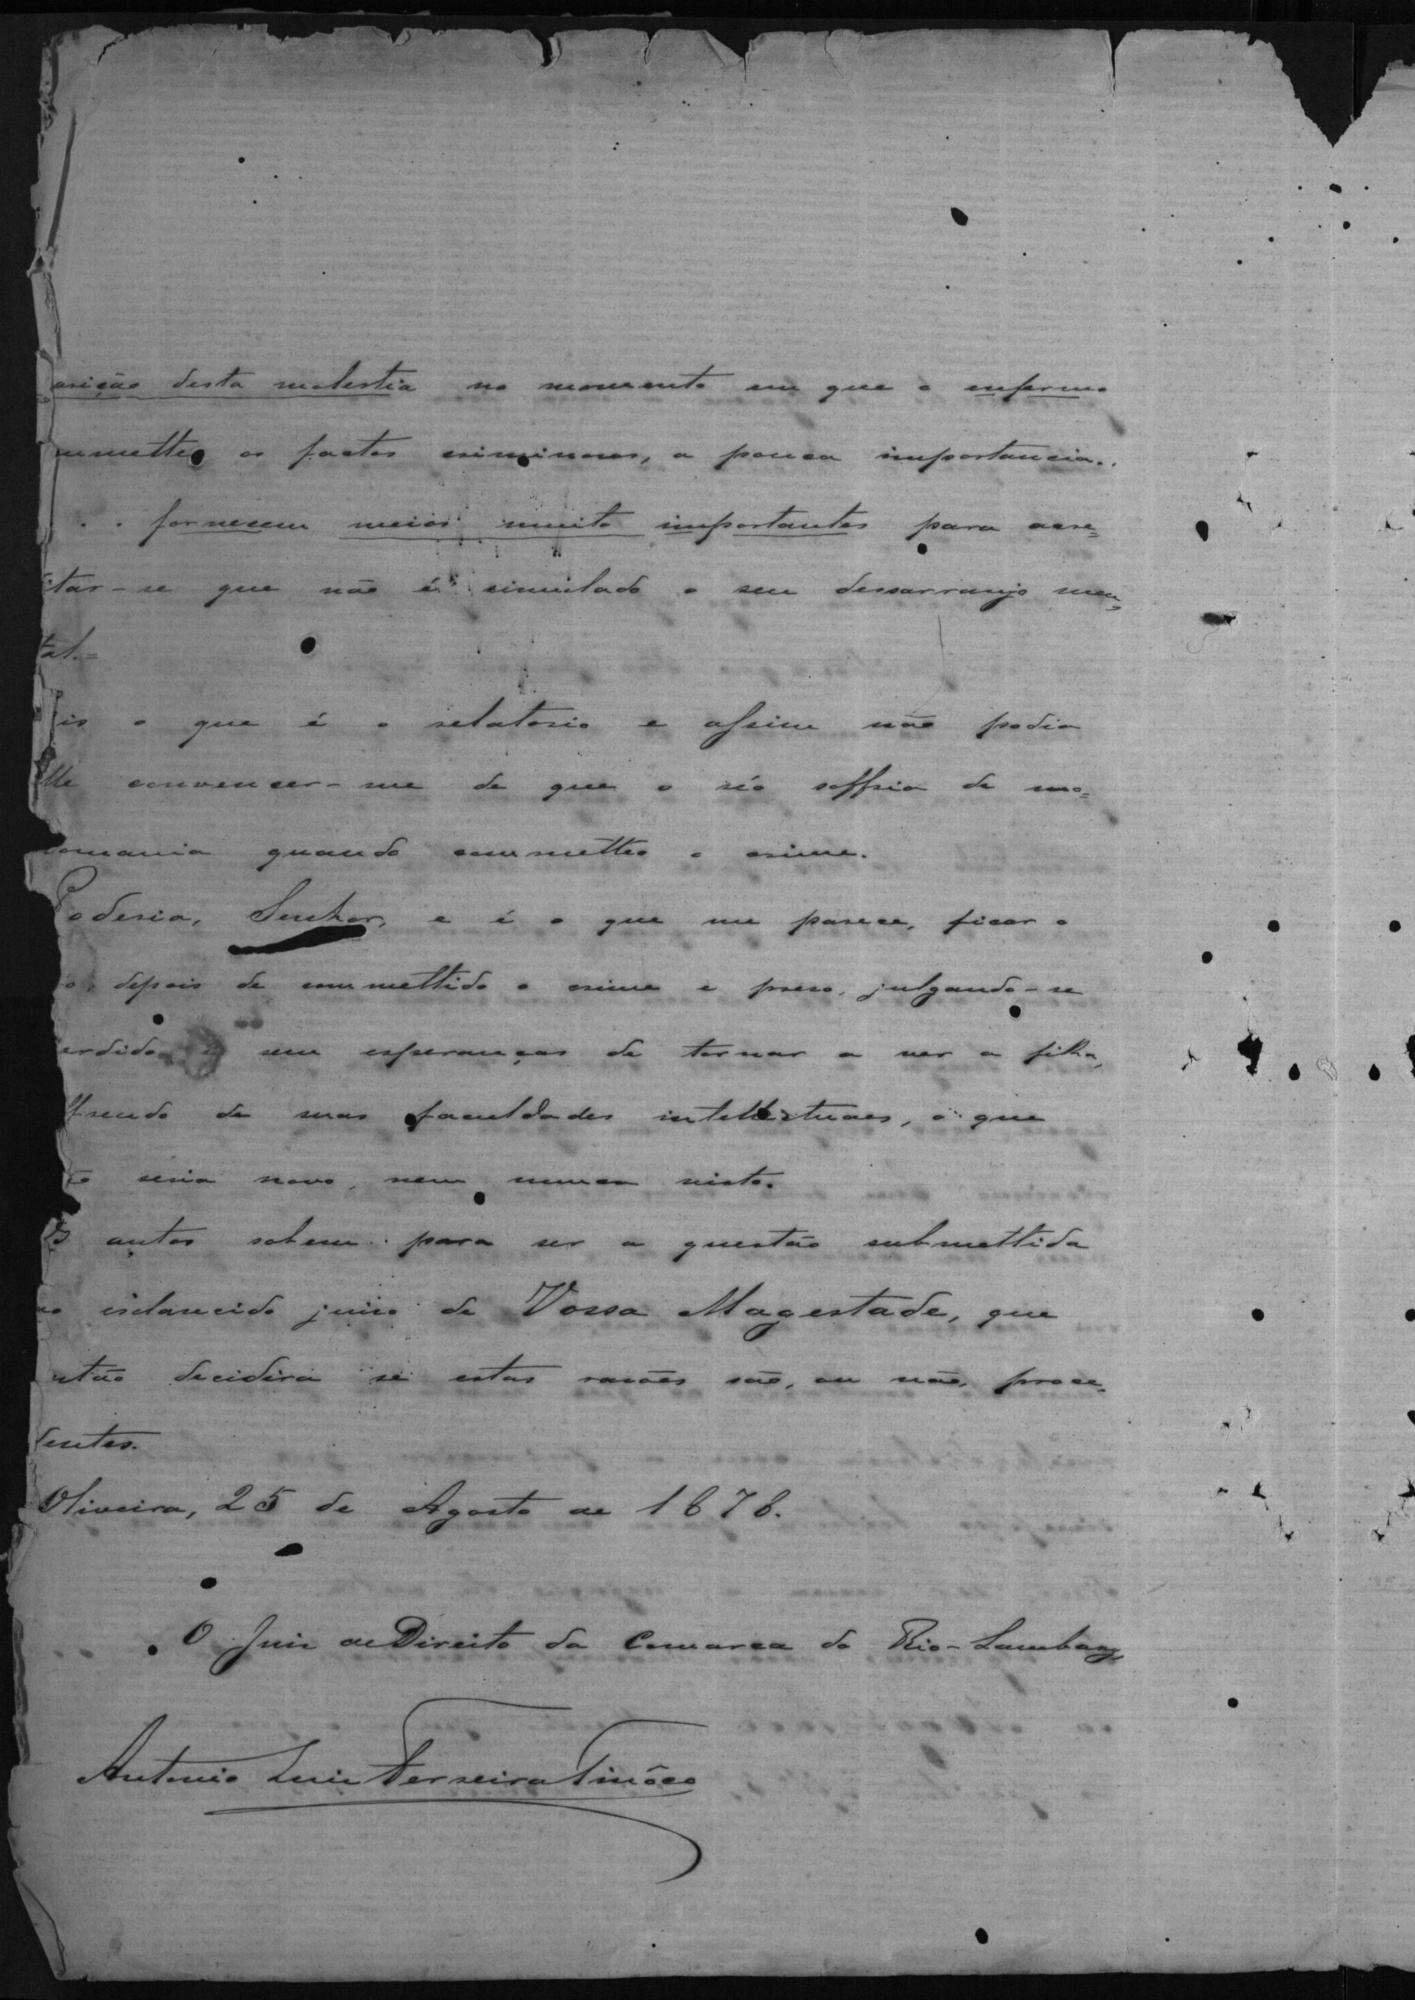 arição desta molestia no momento em que o enfermo
ommetteo os factos criminosos, a pouca importancia..
. . fornecem meios muito importantes para acre=
itar-se que não é simulado o seu desarranjo men=
tal.=
is o que é o relatorio e assim não podia
lle convencer-me de que o réo soffria de mo=
nomania quando commetteo o crime.
Poderia, Senhor, e é o que me parece, ficar o
o, depois de commettido o crime e preso, julgando-se
erdido e sem esperanças de tornar a ver a filha,
ffrendo de suas faculdades intellectuaes, o que
ão seria novo, nem nunca visto.
Os autos sobem para ser a questão submettida
ao esclarecido juizo de Vossa Magestade, que
ntão decidirá se estas razões são, ou não, proce=
dentes.
Oliveira, 25 de Agosto de 1878.
O Juiz de Direito da Comarca do Rio-Lambary,
Antonio Luiz Ferreira Tinôco